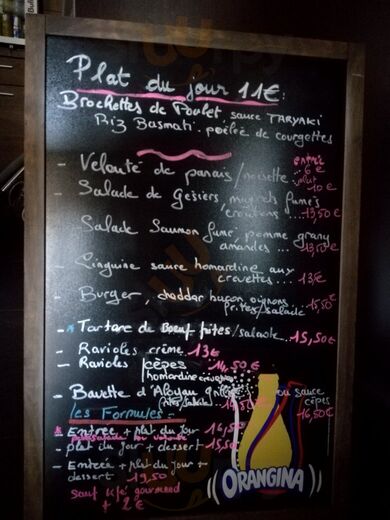 Plat du jour 11€:
Brochettes de Poulet sauce TARYAKI
Riz Basmati. poêlée de courgettes
- Velouté de panais/noisette entrée 6€
plat 10€
- Salade de Gésiers, magrets fumés
croutons...13,50€
Salade Saumon fumé, pomme grany
amandes...13,50€
- Linguine sauce homardine aux
crevettes...13€
- Burger, cheddar bacon, oignons
frites/salade 15,50€
- Tartare de Boeuf frites/salade...15,50€
- Ravioles crème 13€
- Ravioles cèpes 14,50€
homardine crevettes
- Bavette d'Aloyau ou sauce
cèpes
16,50€
les Formules -
- Entrée + plat du jour 16,50
petite salade ou velouté
- plat du jour + dessert 15,50
- Entrée + plat du jour +
dessert 19,50
sauf café gourmand
+ 2€
ORANGINA